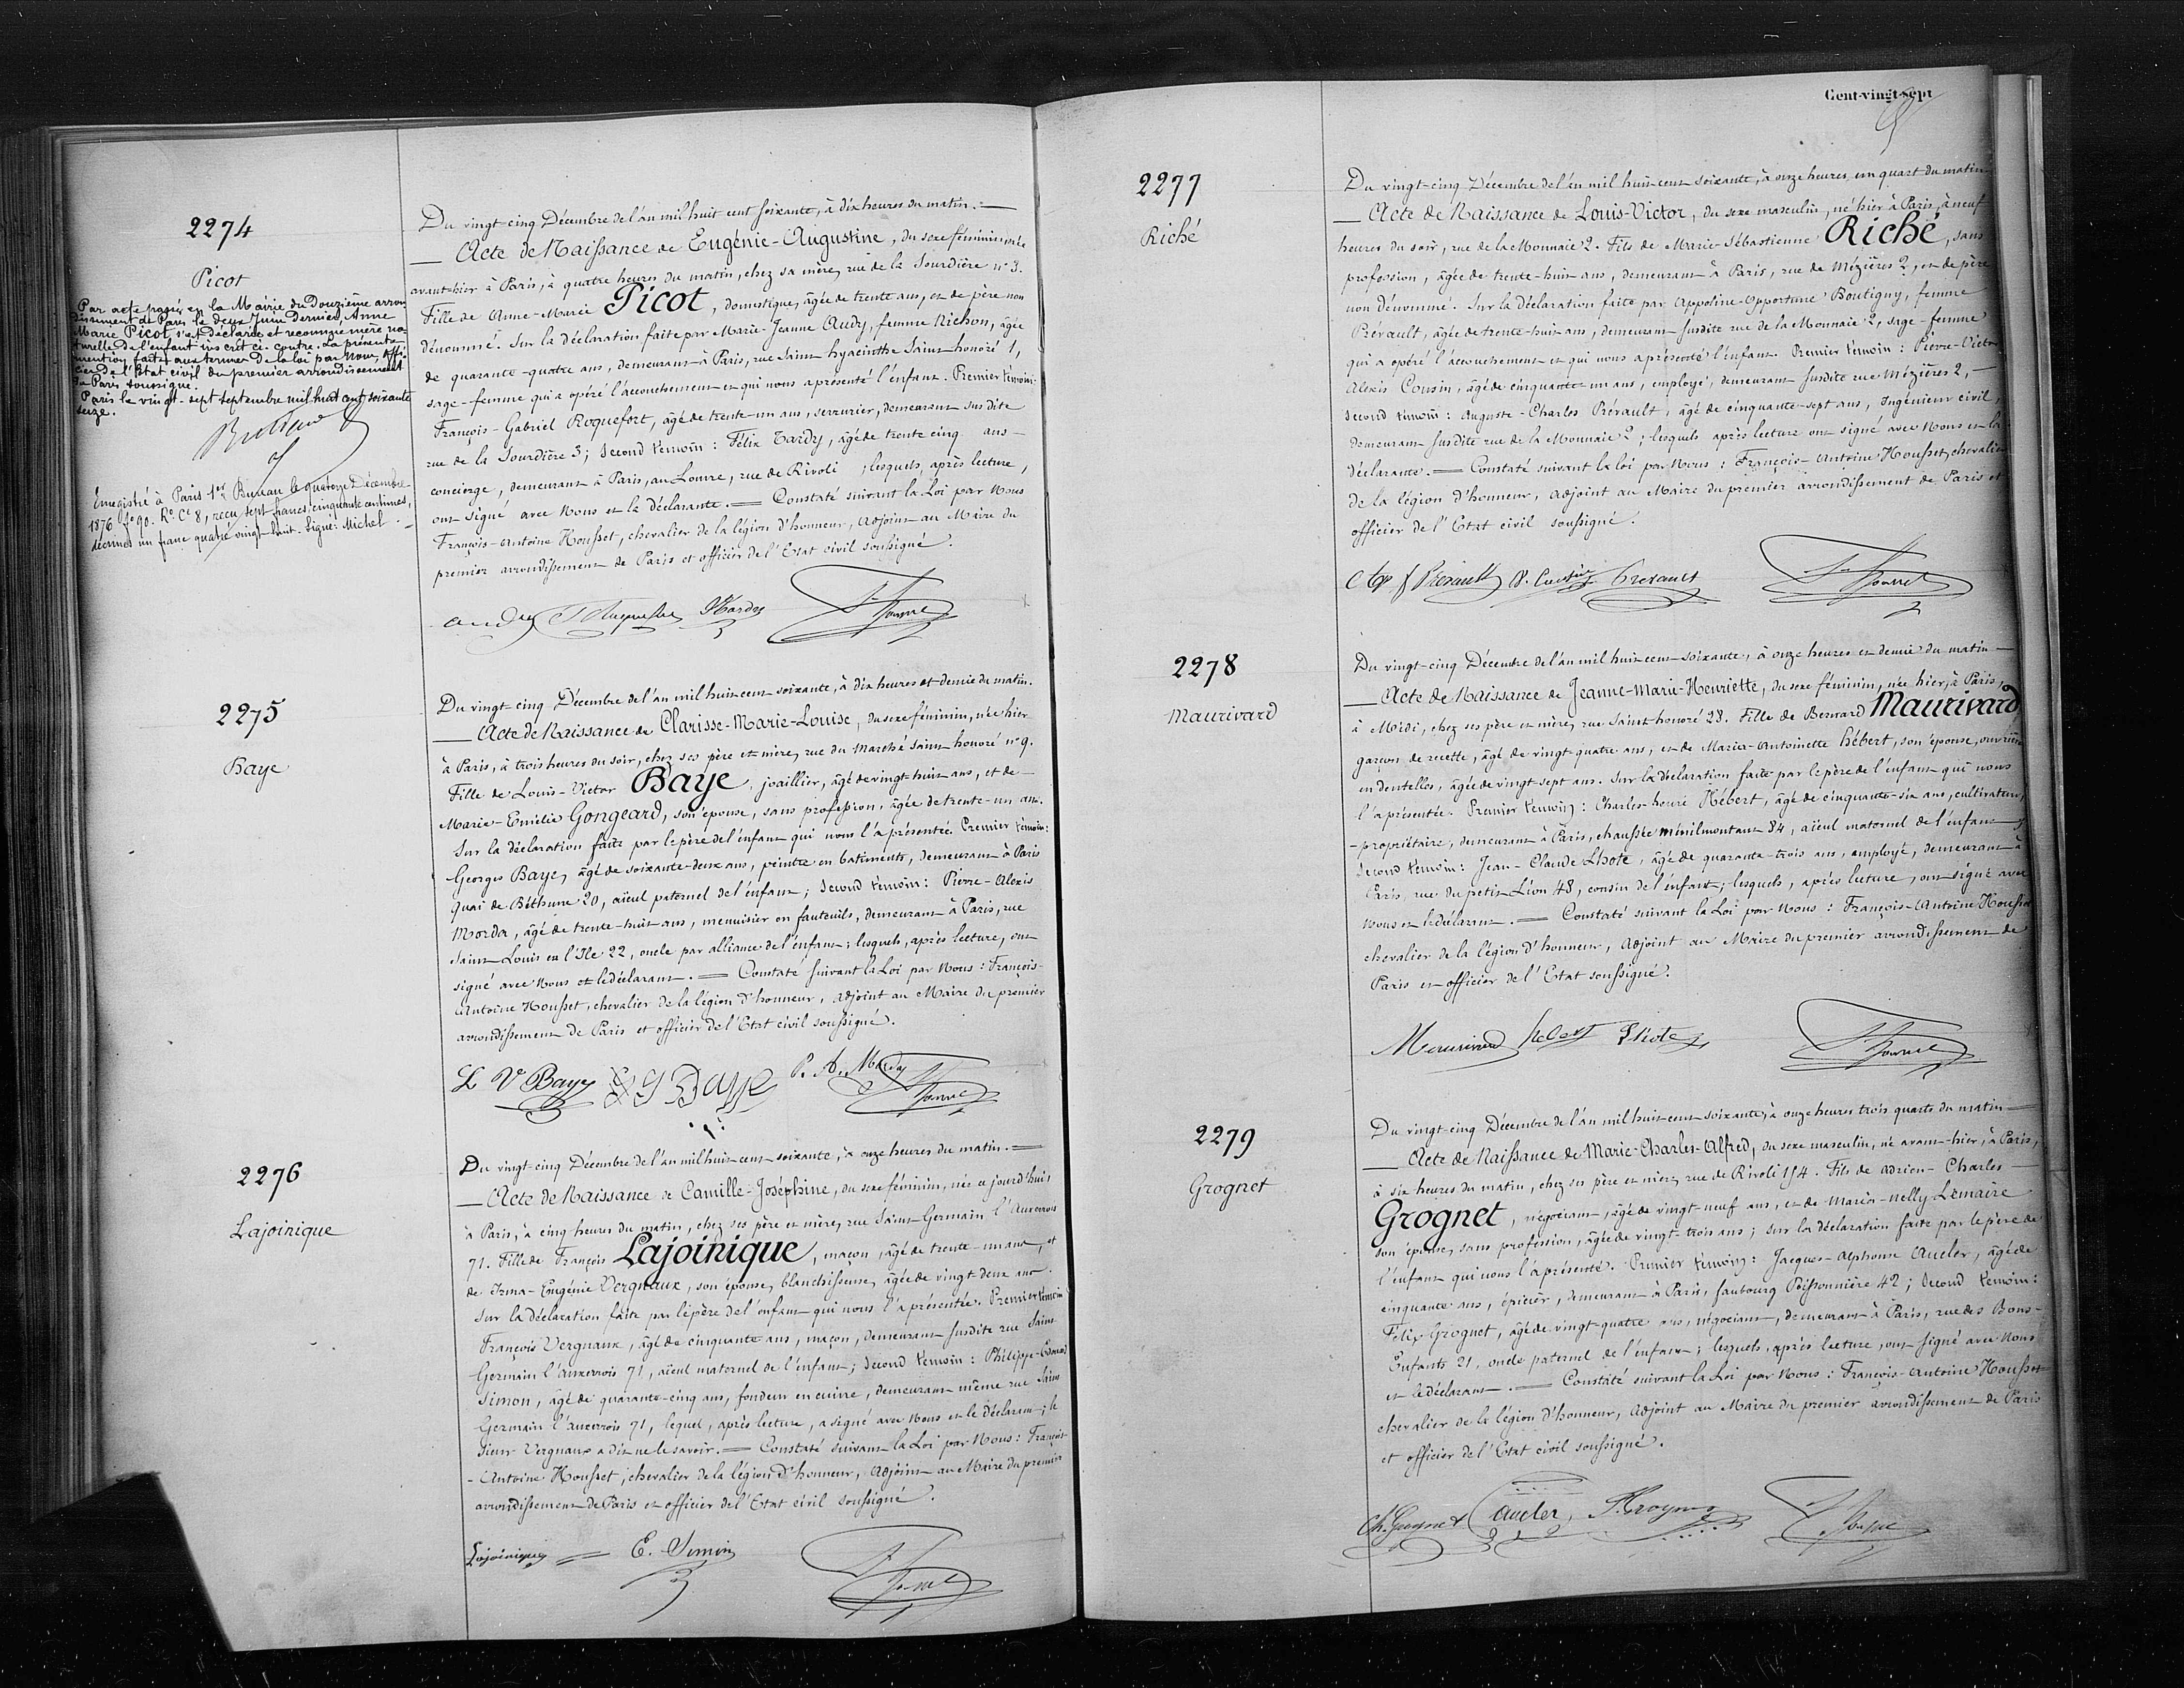 2274
Picot
Par acte passé en la Mairie du Douzième arron
dissement de Paris le deux Juin dernier, Anne
Marie Picot s'est déclarée et reconnue mère na-
turelle de l'enfant inscrit ci-contre. La présente
mention faite aux termes de la loi par Nous, offi-
cier de l'Etat civil du premier arrondissement
de Paris soussigné.
Paris le vingt-sept septembre mil huit cent soixante
seize.
Enregistré à Paris 1er Bureau le quatorze Décembre
1876 fo 90. Ro Ce 8, reçu sept francs cinquante centimes,
décimes un franc quatre vingt huit. Signé: Michel.
Du vingt-cinq Décembre de l'an mil huit cent soixante, à dix heures du matin.
Acte de Naissance de Eugénie-Augustine, du sexe féminin, née
avant-hier à Paris, à quatre heures du matin, chez sa mère, rue de la Sourdière no 3.
Fille de Anne-Marie Picot, domestique, âgée de trente ans, et de père non
dénommé. Sur la déclaration faite par Marie-Jeanne Audy, femme Richon, âgée
de quarante-quatre ans, demeurant à Paris, rue Saint hyacinthe Saint honoré 1,
sage-femme qui a opéré l'accouchement et qui nous a présenté l'enfant. Premier témoin:
François-Gabriel Roquefort, âgé de trente-un ans, serrurier, demeurant susdite
rue de la Sourdière 3; Second témoin: Félix Tardy, âgé de trente cinq ans
concierge, demeurant à Paris, au Louvre, rue de Rivoli; lesquels, après lecture,
ont signé avec Nous et la déclarante. Constaté suivant la Loi par Nous
François-Antoine Housset, chevalier de la légion d'honneur, adjoint au Maire du
premier arrondissement de Paris et officier de l'Etat civil soussigné.
2275
Baye
Du vingt-cinq Décembre de l'an mil huit cent soixante, à dix heures et demie du matin.
Acte de Naissance de Clarisse-Marie-Louise, du sexe féminin, née hier
à Paris, à trois heures du soir, chez ses père et mère, rue du Marché Saint honoré no 9.
Fille de Louis-Victor Baye, joaillier, âgé de vingt-huit ans, et de
Marie-Emélie Gongeard, son épouse, sans profession, âgée de trente-un ans.
Sur la déclaration faite par le père de l'enfant qui nous l'a présentée. Premier témoin:
Georges Baye, âgé de soixante-deux ans, peintre en batiments, demeurant à Paris
quai de Béthune 20, aïeul paternel de l'enfant; Second témoin: Pierre-Alexis
Morda, âgé de trente-huit ans, menuisier en fauteuils, demeurant à Paris, rue
Saint Louis en l'Ile 22, oncle par alliance de l'enfant; lesquels, après lecture, ont
signé avec Nous et le déclarant. Constaté suivant la Loi par Nous: François-
Antoine Housset, chevalier de la légion d'honneur, adjoint au Maire du premier
arrondissement de Paris et officier de l'Etat civil soussigné.
L V Baye G Baye P. A. Morda
2276
Lajoinique
Du vingt-cinq Décembre de l'an mil huit cent soixante, à onze heures du matin.
Acte de Naissance de Camille-Joséphine, du sexe féminin, née aujourd'hui,
à Paris, à cinq heures du matin, chez ses père et mère, rue Saint Germain l'Auxerrois
71. Fille de François Lajoinique, maçon, âgé de trente-un ans, et
de Irma-Eugénie Vergnaux, son épouse, blanchisseuse, âgée de vingt-deux ans.
Sur la déclaration faite par le père de l'enfant qui nous l'a présentée. Premier témoin
François Vergnaux, âgé de cinquante ans, maçon, demeurant susdite rue Saint
Germain l'Auxerrois 71, aïeul maternel de l'enfant; Second témoin: Philippe-Edouard
Simon, âgé de quarante-cinq ans, fondeur en cuivre, demeurant même rue Saint
Germain l'Auxerrois 71, lequel, après lecture, a signé avec Nous et le déclarant; le
Sieur Vergnaux a dit ne le savoir. Constaté suivant la Loi par Nous: François
-Antoine Housset, chevalier de la légion d'honneur, adjoint au Maire du premier
arrondissement de Paris et officier de l'Etat civil soussigné.
Lajoinique E. Simon
Cent-vingt-sept
2277
Riché
Du vingt-cinq Décembre de l'an mil huit cent soixante, à onze heures un quart du matin
Acte de Naissance de Louis-Victor, du sexe masculin, né hier à Paris, à neuf
heures du soir, rue de la Monnaie 2. Fils de Marie-Sébastienne Riché, sans
profession, âgée de trente-huit ans, demeurant à Paris, rue de Mézières 2, et de père
non dénommé. Sur la déclaration faite par Appoline-Opportune Boutigny, femme
Prévault, âgée de trente-huit ans, demeurant susdite rue de la Monnaie 2, sage-femme
qui a opéré l'accouchement et qui nous a présenté l'enfant. Premier témoin: Pierre-Victor
Alexis Cousin, âgé de cinquante-un ans, employé, demeurant susdite rue Mézières 2,
Second témoin: Auguste-Charles Prévault, âgé de cinquante-sept ans, Ingénieur civil,
demeurant susdite rue de la Monnaie 2; lesquels après lecture ont signé avec Nous et la
déclarante. Constaté suivant la loi par Nous: François-Antoine Housset, chevalier
de la légion d'honneur, adjoint au Maire du premier arrondissement de Paris et
officier de l'Etat civil soussigné.
2278
Maurivard
Du vingt-cinq Décembre de l'an mil huit cent soixante, à onze heures et demie du matin
Acte de Naissance de Jeanne-Marie-Henriette, du sexe féminin, née hier, à Paris,
à Midi, chez ses père et mère, rue Saint honoré 28. Fille de Bernard Maurivard,
garçon de recette, âgé de vingt-quatre ans, et de Marie-Antoinette hébert, son épouse, ouvrière
en dentelles, âgée de vingt-sept ans. Sur la déclaration faite par le père de l'enfant qui nous
l'a présentée. Premier témoin: Charles-honré Hébert, âgé de cinquante-six ans, cultivateur,
-propriétaire, demeurant à Paris, chaussée ménilmontant 84, aïeul maternel de l'enfant;
Second témoin: Jean-Claude Lhote, âgé de quarante-trois ans, employé, demeurant à
Paris, rue du petit Lion 48, cousin de l'enfant; lesquels, après lecture, ont signé avec
Nous et le déclarant. Constaté suivant la Loi par Nous: François-Antoine Housset
chevalier de la légion d'honneur, Adjoint au Maire du premier arrondissement de
Paris et officier de l'Etat soussigné.
Maurivard hébert Lhote
2279
Grognet
Du vingt-cinq Décembre de l'an mil huit cent soixante, à onze heures trois quarts du matin
Acte de Naissance de Marie-Charles-Alfred, du sexe masculin, né avant-hier, à Paris,
à six heures du matin, chez ses père et mère, rue de Rivoli 154. Fils de Adrien-Charles
Grognet, négociant, âgé de vingt-neuf ans, et de Marie-nelly Lemaire
son épouse, sans profession, âgée de vingt-trois ans; sur la déclaration faite par le père de
l'enfant qui nous l'a présenté. Premier témoin: Jacques-Alphonse Aucler, âgé de
cinquante ans, épicier, demeurant à Paris, faubourg Poissonnière 42; Second témoin:
Félix Grognet, âgé de vingt-quatre ans, négociant, demeurant à Paris, rue des Bons-
Enfants 21, oncle paternel de l'enfant; lesquels, après lecture, ont signé avec Nous
et le déclarant. Constaté suivant la Loi par Nous: François-Antoine Housset
chevalier de la légion d'honneur, Adjoint au Maire du premier arrondissement de Paris
et officier de l'Etat civil soussigné.
Ch. Grognet Aucler F. Grognet